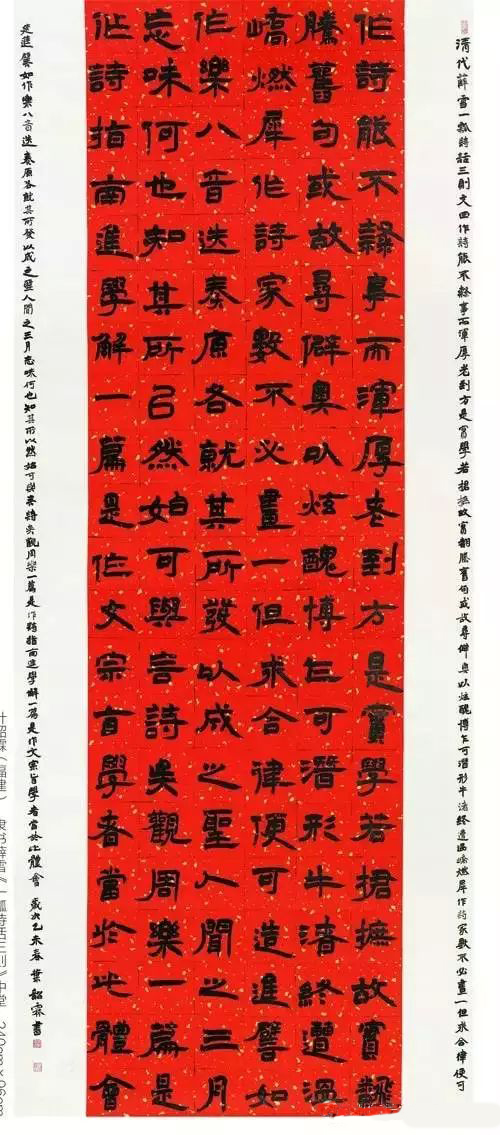 清代薛雪一瓢詩話三則文曰作詩能不隸事而渾厚老到方是實學若捃摭故實翻騰舊句或故尋僻奧以炫醜博乍可潛形牛渚終遭溫嶠燃犀作詩家數不必畫一但求合律便可
作詩能不隸事而渾厚老到方是實學若捃摭故實翻
騰舊句或故尋僻奧以炫醜博乍可潛形牛渚終遭溫
嶠燃犀作詩家數不必畫一但求合律便可造進譬如
作樂八音迭奏原各就其所發以成之聖人聞之三月
忘味何也知其所已然始可與言詩矣觀周樂一篇是
作詩指南進學解一篇是作文宗旨學者當於此體會
造進譬如作樂八音迭奏原各就其所發以成之聖人聞之三月忘味何也知其所以然始可與言詩矣觀周樂一篇是作詩指南進學解一篇是作文宗旨學者當於此體會 歲次乙未春 葉韶霖書
叶韶霖（福建） 隶书薛雪《一瓢诗话三则》中堂 240cm×96cm